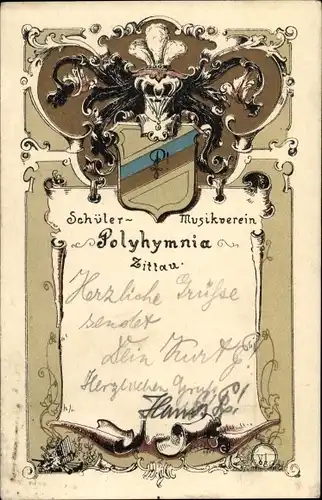 Schüler- Musikverein
Polyhymnia
Zittau.
Herzliche Grüße
sendet
Dein Kurt
Herzlichen Gruß
VI